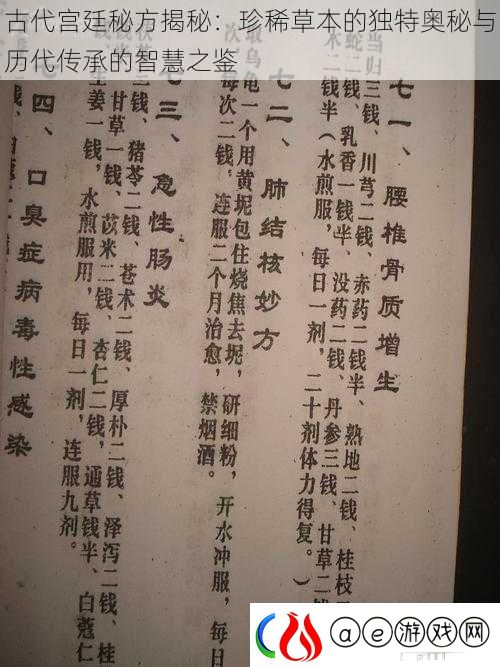 古代宫廷秘方揭秘：珍稀草本的独特奥秘与
历代传承的智慧之鉴
七一、腰椎骨质增生
当归三钱、川芎二钱、赤药二钱半、熟地二钱、桂枝
蛇二钱、乳香一钱半、没药二钱、丹参三钱、甘草二
钱半（水煎服，每日一剂，二十剂体力得复。）
七二、肺结核妙方
取乌龟一个用黄坭包住烧焦去坭，研细粉，开水冲服，每日
每次二钱，连服二个月治愈，禁烟酒。
七三、急性肠炎
茯苓三钱、猪苓二钱、苍术二钱、厚朴二钱、泽泻二钱、桂
甘草一钱、苡米二钱、杏仁二钱，通草钱半、白蔻仁
生姜一钱，水煎服用，每日一剂，连服九剂。
七四、口臭症病毒性感染
ae游戏网